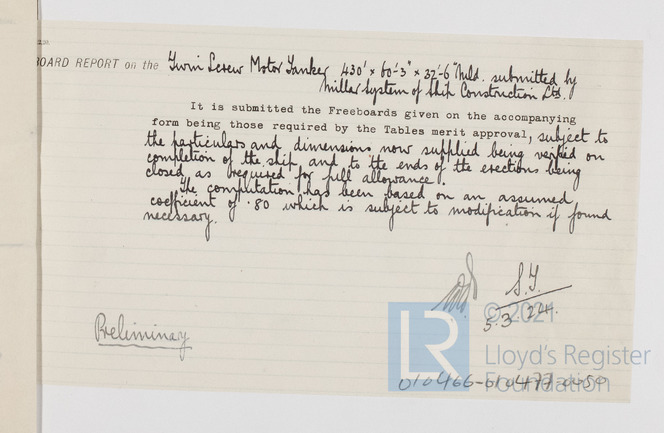 BOARD REPORT on the Twin Screw Motor Tanker 430' × 60'-3" × 32'-6" Mld. submitted by
Millar System of Ship Construction Ltd.
It is submitted the Freeboards given on the accompanying
form being those required by the Tables merit approval, subject to
the particulars and dimensions now supplied being verified on
completion of the ship, and to the ends of the erections being
closed as required for full allowance.
The computation has been based on an assumed
coefficient of .80 which is subject to modification if found
necessary.
S.F.
5.3.24.
Preliminary
© 2021
LR
Lloyd's Register
Foundation
010466-010477-0450